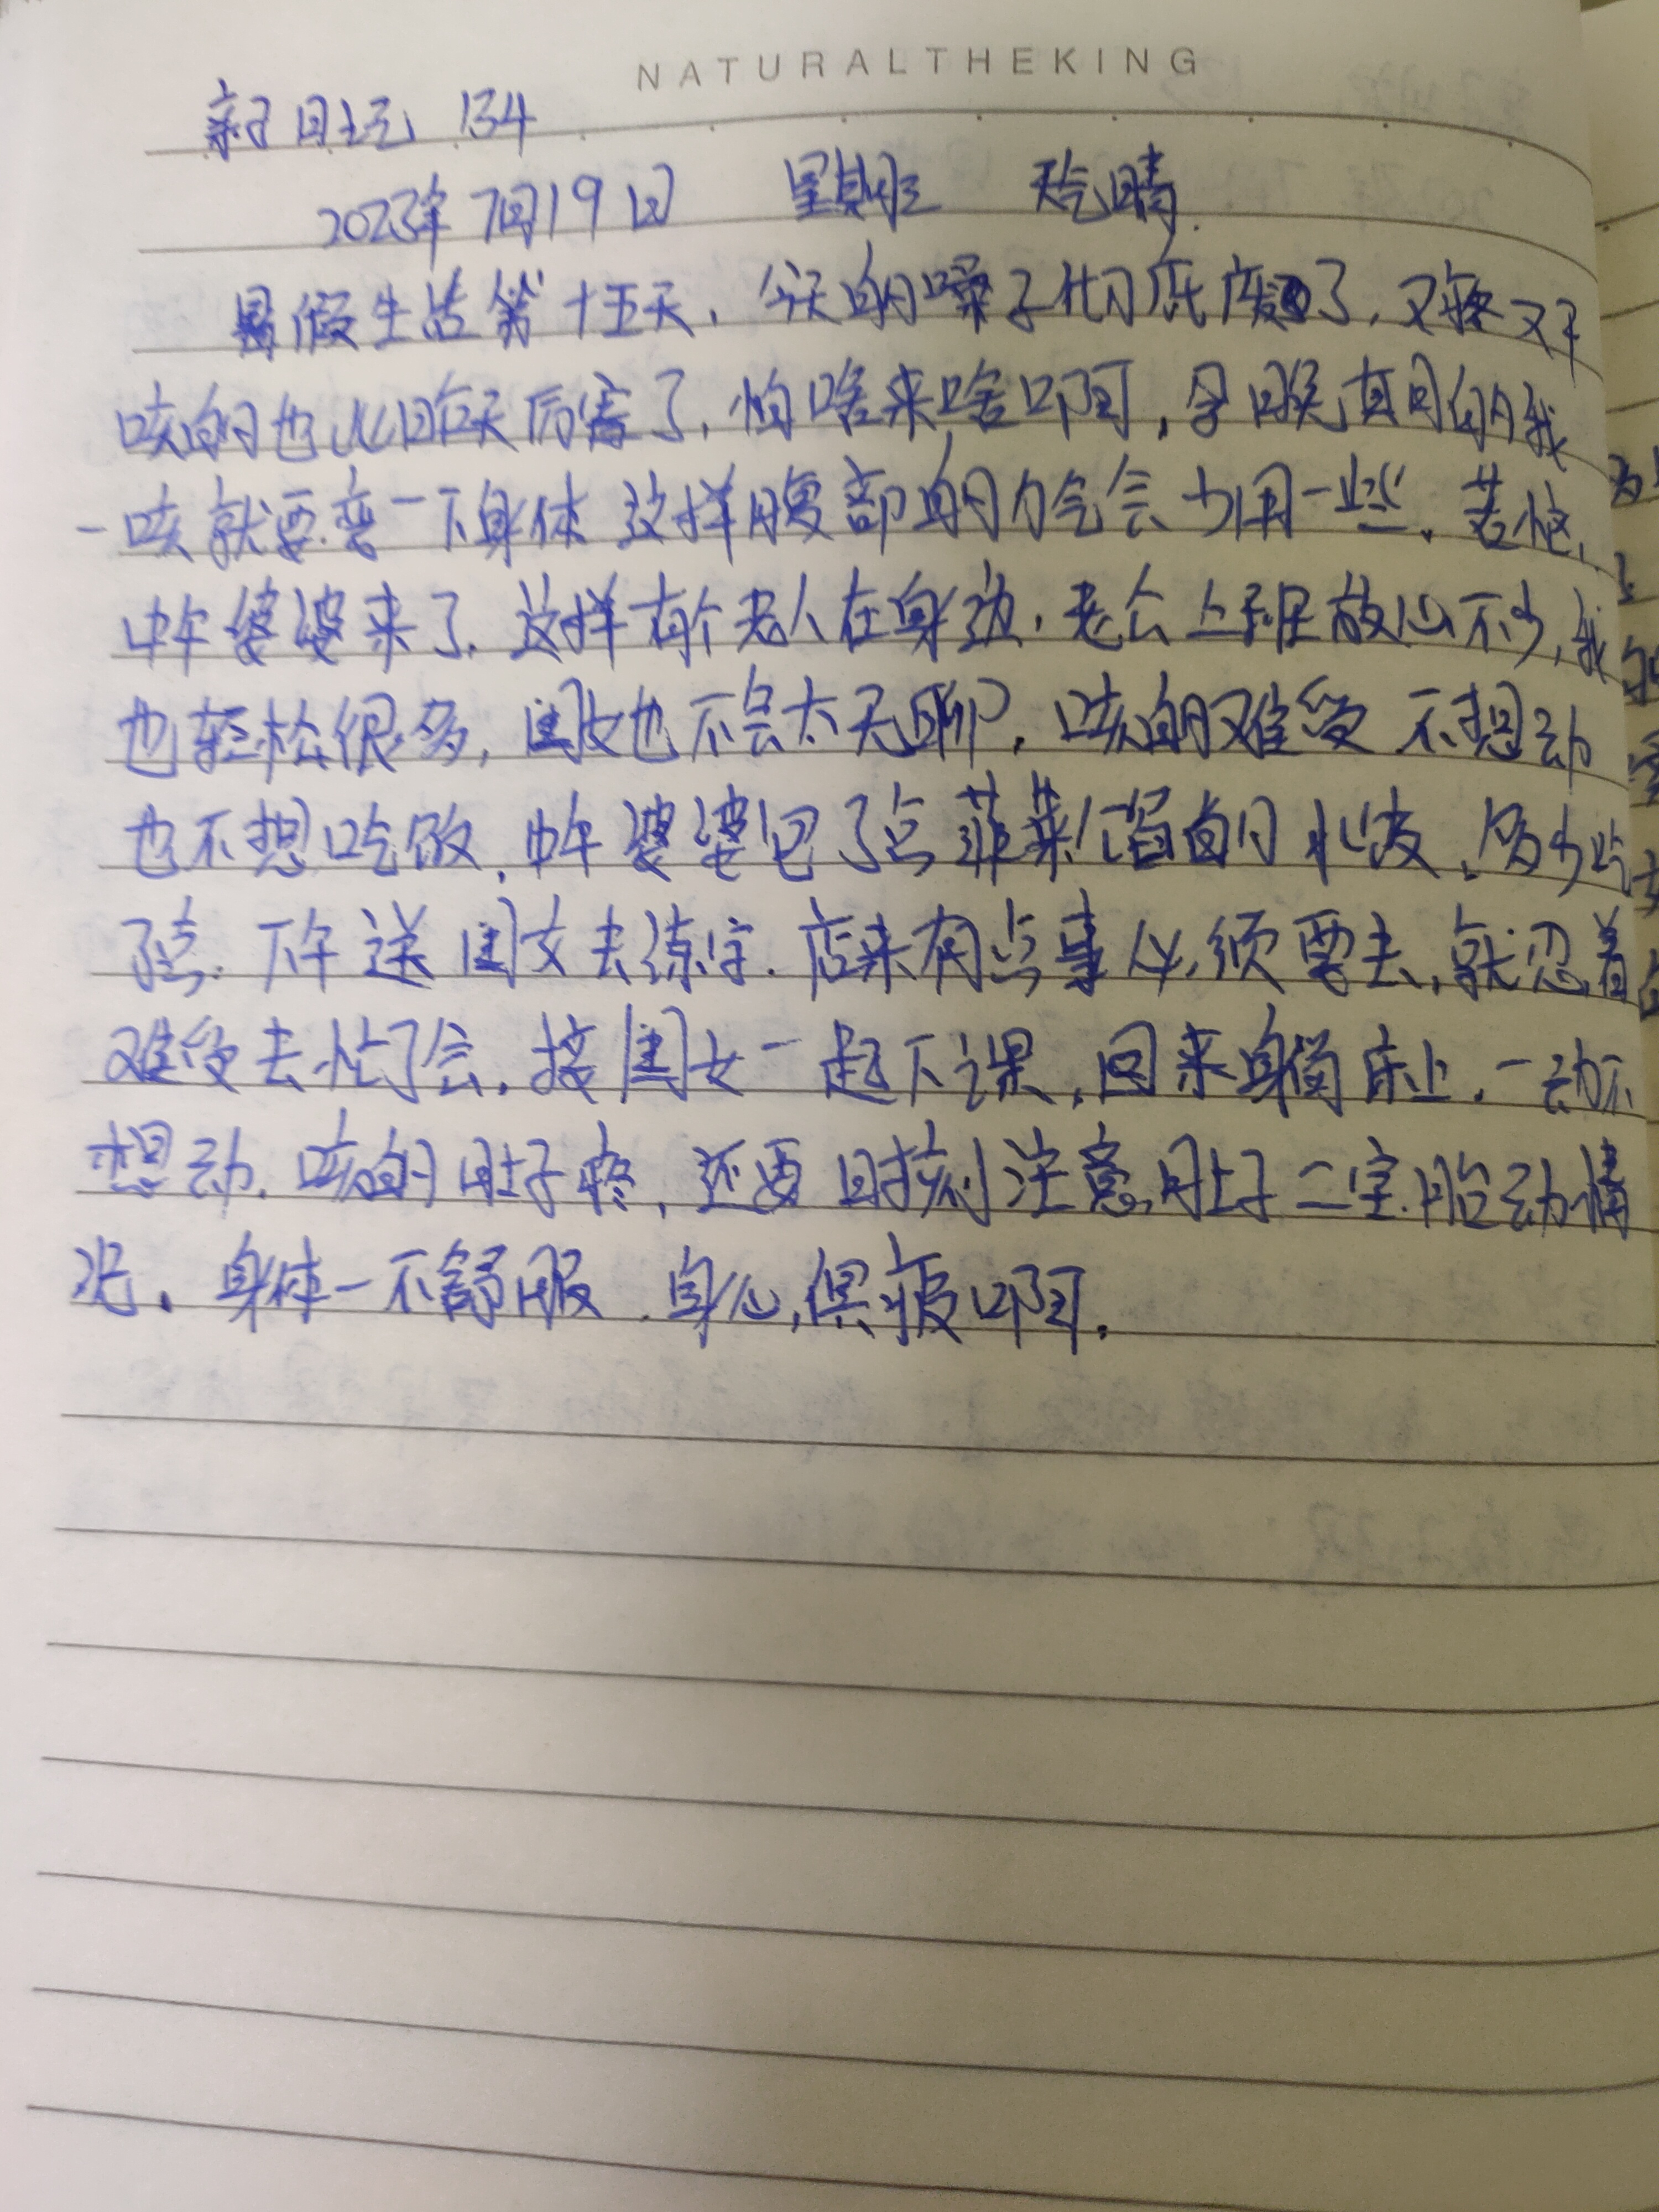 NATURALTHEKING
新日记 134
2023年7月19日 星期三 天气晴.
暑假生活第十五天，今天的嗓子彻底废了，又疼又干
咳的也比昨天厉害了，怕啥来啥啊，孕晚真的我
一咳就要弯一下身体 这样腹部的力气会少用一些。苦恼，
中午婆婆来了，这样有个老人在身边，老公上班放心不少，我
也轻松很多，闺女也不会太无聊，咳的难受 不想动
也不想吃饭，中午婆婆包了点韭菜馅的水饺，多少吃
了点，下午送闺女去练字，店来有点事必须要去，就忍着
难受去忙了会，接闺女一起下课，回来躺床上，一动不
想动，咳的肚子疼，还要时刻注意肚子二宝胎动情
况。身体一不舒服，身心俱疲啊。